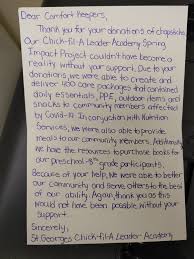 Dear Comfort Keepers,
Thank you for your donations of chapsticks.
Our Chick-fil-A Leader Academy Spring
Impact Project couldn't have become a
reality without your support. Due to your
donations, we were able to create and
deliver 400 care packages that contained
daily essentials, PPE, outdoor items and
snacks to community members affected
by Covid-19. In conjuction with Nutrition
Services, we were also able to provide
meals to our community members. Additionally
we have the resources to purchase books for
our preschool-8th grade participants.
Because of your help, we were able to better
our community and serve others to the best
of our ability. Again, thank you as this
would not have been possible without your
support.
Sincerely,
St Georges Chick-fil-A Leader Academy